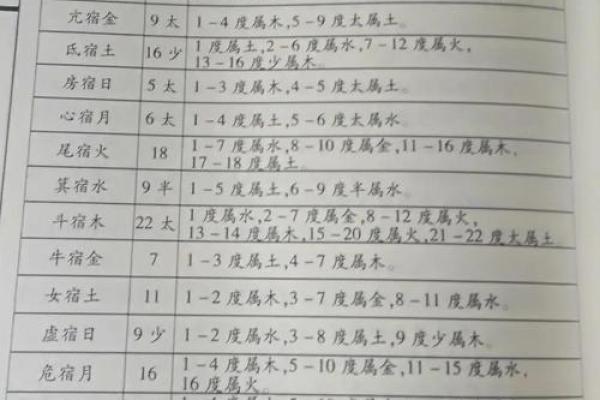 亢宿金 9太 1-4度属木,5-9度太属土。
氐宿土 16少 1度属土,2-6度属水,7-12度属火,
13-16度少属木。
房宿日 5太 1-3度属木,4-5度太属土。
心宿月 6太 1-4度属土,5-6度太属水。
尾宿火 18 1-7度属水,8-10度属金,11-16度属木,
17-18度属土。
箕宿水 9半 1-5度属土,6-9度半属水。
斗宿木 22太 1度属水,2-7度属金,8-12度属火,
13-14度属木,15-20度属火,21-22度太属土。
牛宿金 7 1-3度属土,4-7度属木。
女宿土 11 1-2度属木,3-7度属金,8-11度属水。
虚宿日 9少 1-2度属水,3-8度属土,9度少属木。
危宿月 16 1-4度属木,5-10度属金,11-15度属水,
16度属火。